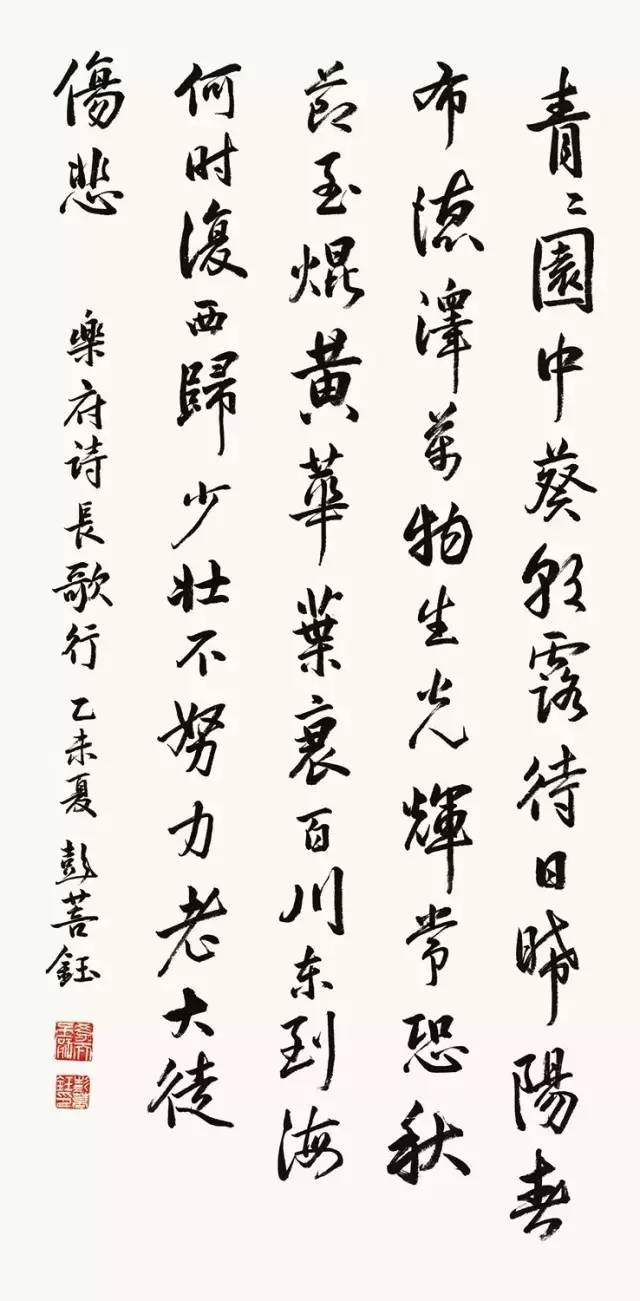 青〻園中葵朝露待日晞陽春
布德澤萬物生光輝常恐秋
節至焜黄華葉衰百川东到海
何时復西歸少壯不努力老大徒
傷悲
樂府诗長歌行 乙未夏 彭菩鈺